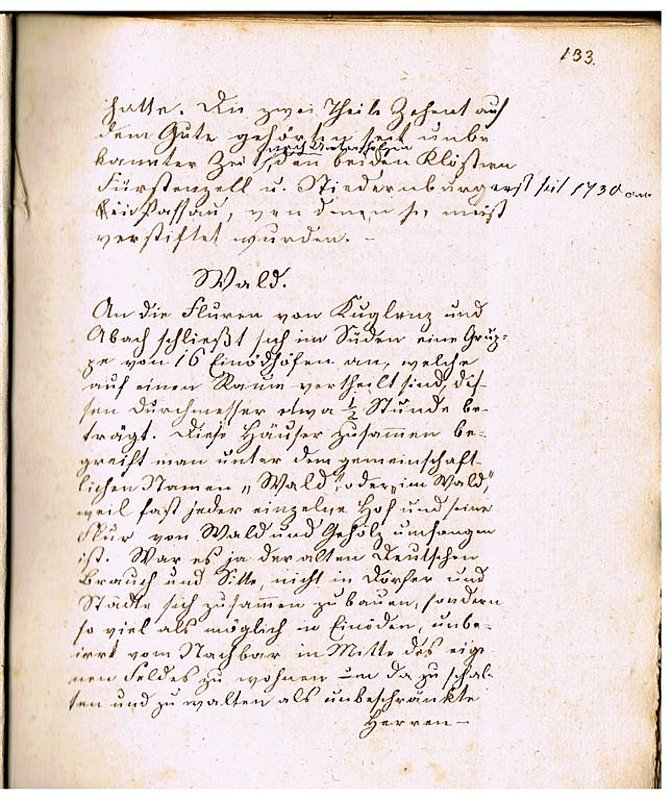 133.
hatte. Die zwei Theile Zehent auf
dem Gute gehörten seit unbe
kannter Zeit, den beiden Klöstern
Fürstenzell u. Niedernburg erst seit 1730 an
bei Passau, von denen sie meist
verstiftet wurden. –
Wald.
An die Fluren von Kuglenz und
Abach schließt sich im Süden eine Grup-
pe von 16 Einödhöfen an, welche
auf einen Raum vertheilt sind, des-
sen Durchmesser etwa ½ Stunde be-
trägt. Diese Häuser zusammen be-
greift man unter dem gemeinschaft-
lichen Namen „Wald", oder „im Wald",
weil fast jeder einzelne Hof und seine
Flur von Wald und Gehölz umfangen
ist. War es ja der alten Deutschen
Brauch und Sitte, nicht in Dörfer und
Städte sich zusammen zu bauen, sondern
so viel als möglich in Einöden, unbe-
irrt vom Nachbar in Mitte des eige-
nen Feldes zu wohnen um da zu schal-
ten und zu walten als unbeschränkte
Herren –